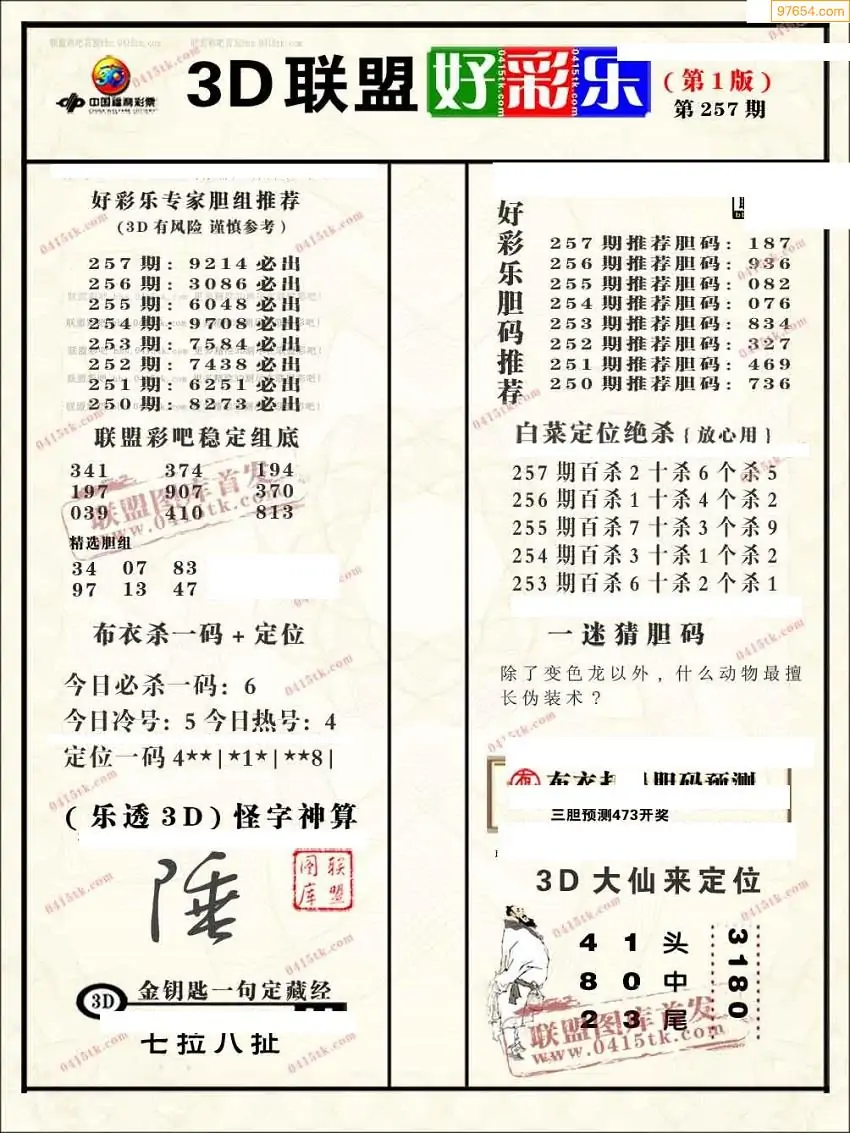 97654.com
3D联盟好彩乐
(第1版)
第257期
中国福利彩票
CHINA WELFARE LOTTERY
好彩乐专家胆组推荐
(3D有风险 谨慎参考)
257期: 9214必出
256期: 3086必出
255期: 6048必出
254期: 9708必出
253期: 7584必出
252期: 7438必出
251期: 6251必出
250期: 8273必出
联盟彩吧稳定组底
341 374 194
197 907 370
039 410 813
精选胆组
34 07 83
97 13 47
联盟图库首发
www.0415tk.com
布衣杀一码+定位
今日必杀一码: 6
今日冷号: 5 今日热号: 4
定位一码4**|*1*|**8|
(乐透3D)怪字神算
陲
联盟图库
3D 金钥匙一句定藏经
七拉八扯
好彩乐胆码推荐
257期推荐胆码: 187
256期推荐胆码: 936
255期推荐胆码: 082
254期推荐胆码: 076
253期推荐胆码: 834
252期推荐胆码: 327
251期推荐胆码: 469
250期推荐胆码: 736
白菜定位绝杀{放心用}
257期百杀2十杀6个杀5
256期百杀1十杀4个杀2
255期百杀7十杀3个杀9
254期百杀3十杀1个杀2
253期百杀6十杀2个杀1
一迷猜胆码
除了变色龙以外，什么动物最擅
长伪装术？
三胆预测473开奖
3D大仙来定位
4 1 头
8 0 中
2 3 尾
3180
联盟图库首发
www.0415tk.com
0415tk.com